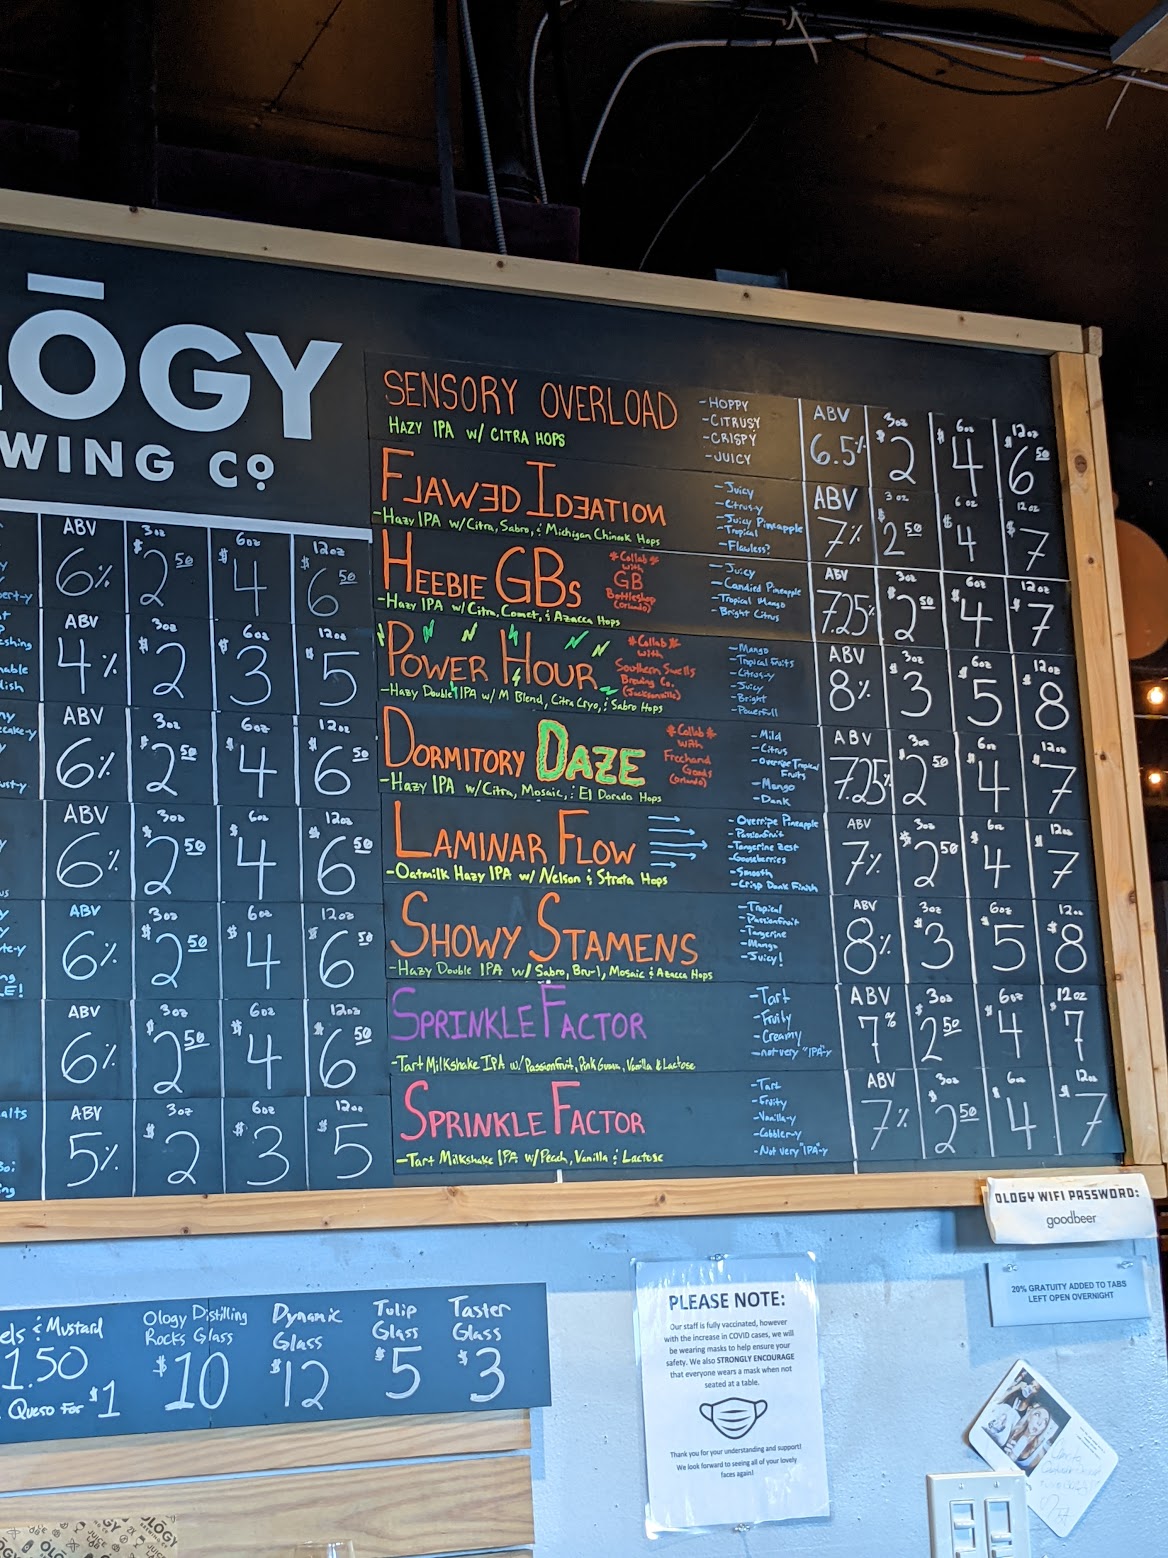 ŌGY
WING CO
SENSORY OVERLOAD
HAZY IPA W/ CITRA HOPS
-HOPPY
-CITRUSY
-CRISPY
-JUICY
ABV 3oz 6oz 12oz
6.5% $2 $4 $6 50
FLAWED IDEATION
-Hazy IPA w/Citra, Sabro, & Michigan Chinook Hops
-Juicy
-Citrus-y
-Juicy Pineapple
-Tropical
-Flawless?
ABV 3 oz 6 oz 12oz
7% $2 50 $4 $7
HEEBIE GBs
-Hazy IPA w/Citra, Comet, & Azacca Hops
*Collab*
with
GB
Bottleshop
(Orlando)
-Juicy
-Candied Pineapple
-Tropical Mango
-Bright Citrus
ABV 3oz 6oz 12oz
7.25% $2 50 $4 $7
POWER HOUR
-Hazy Double IPA w/ M Blend, Citra Cryo, & Sabro Hops
*Collab*
with
Southern Swells
Brewing Co.
(Jacksonville)
-Mango
-Tropical Fruits
-Citrus-y
-Juicy
-Bright
-Powerfull
ABV 3oz 6oz 12oz
8% $3 $5 $8
DORMITORY DAZE
-Hazy IPA w/Citra, Mosaic, & El Dorado Hops
*Collab*
with
Freehand
Goods
(Orlando)
-Mild
-Citrus
-Overripe Tropical
Fruits
-Mango
-Dank
ABV 3oz 6oz 12oz
7.25% $2 50 $4 $7
LAMINAR FLOW
-Oatmilk Hazy IPA w/ Nelson & Strata Hops
-Overripe Pineapple
-Passionfruit
-Tangerine Zest
-Gooseberries
-Smooth
-Crisp Dank Finish
ABV 3oz 6oz 12oz
7% $2 50 $4 $7
SHOWY STAMENS
-Hazy Double IPA w/ Sabro, Bru-1, Mosaic & Azacca Hops
-Tropical
-Passionfruit
-Tangerine
-Mango
-Juicy!
ABV 3oz 6oz 12oz
8% $3 $5 $8
SPRINKLE FACTOR
-Tart Milkshake IPA w/ Passionfruit, Pink Guava, Vanilla & Lactose
-Tart
-Fruity
-Creamy
-not very "IPA"-y
ABV 3oz 6oz 12oz
7% $2 50 $4 $7
SPRINKLE FACTOR
-Tart Milkshake IPA w/Peach, Vanilla & Lactose
-Tart
-Fruity
-Vanilla-y
-Cobbler-y
-Not very "IPA"-y
ABV 3oz 6oz 12oz
7% $2 50 $4 $7
ABV 3oz 6oz 12oz
6% $2 50 $4 $6 50
ABV 3oz 6oz 12oz
4% $2 $3 $5
ABV 3oz 6oz 12oz
6% $2 50 $4 $6 50
ABV 3oz 6oz 12oz
6% $2 50 $4 $6 50
ABV 3oz 6oz 12oz
6% $2 50 $4 $6 50
ABV 3oz 6oz 12oz
6% $2 50 $4 $6 50
ABV 3oz 6oz 12oz
5% $2 $3 $5
OLOGY WIFI PASSWORD:
goodbeer
20% GRATUITY ADDED TO TABS
LEFT OPEN OVERNIGHT
els & Mustard
1.50
Queso For $1
Ology Distilling
Rocks Glass
$10
Dynamic
Glass
$12
Tulip
Glass
$5
Taster
Glass
$3
PLEASE NOTE:
Our staff is fully vaccinated, however
with the increase in COVID cases, we will
be wearing masks to help ensure your
safety. We also STRONGLY ENCOURAGE
that everyone wears a mask when not
seated at a table.
Thank you for your understanding and support!
We look forward to seeing all of your lovely
faces again!